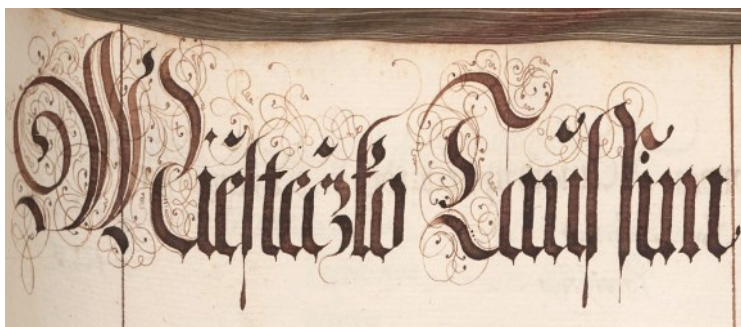 Mieſteczko Tauſſim